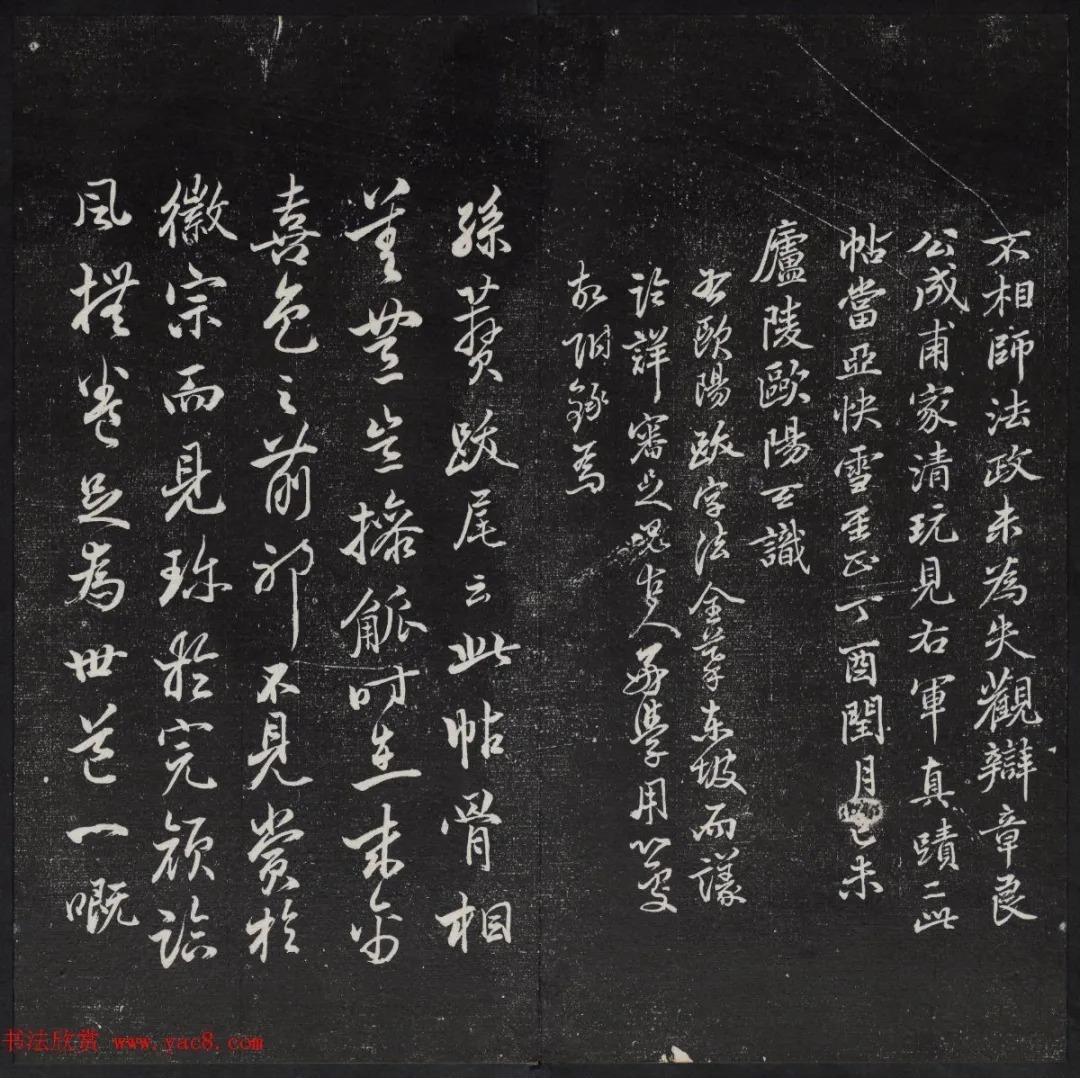 不相師法政未為失觀辯章良
公成甫家清玩見右軍真蹟二此
帖當亞快雪至正丁酉閏月己未
廬陵歐陽玄識
右歐陽跋字法全摹東坡而議
論詳審足見古人為學用心
故附錄焉
孫蕡跋尾云此帖骨相
差無豈操觚時生未帶
喜色之前耶不見賞於
徽宗而見珍於完顏論
風撫卷足為世道一嘅
书法欣赏 www.yac8.com